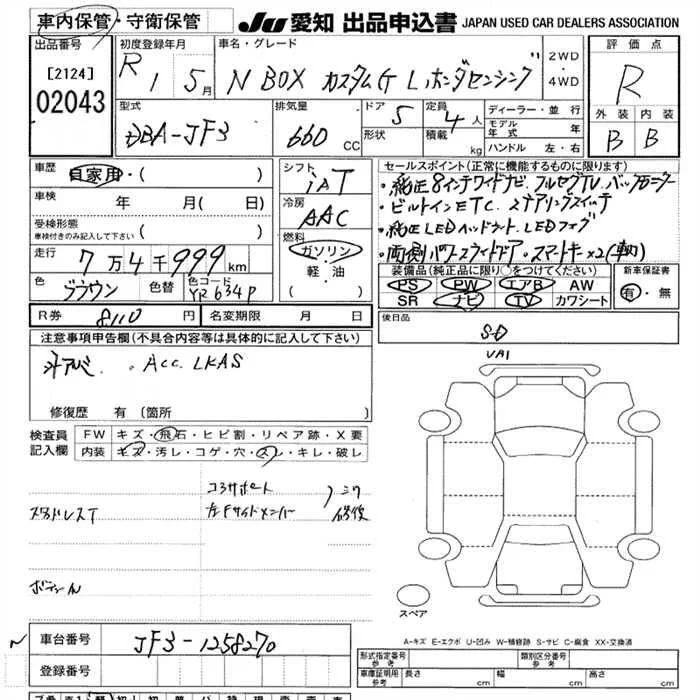 車内保管・守衛保管 JU 愛知 出品申込書 JAPAN USED CAR DEALERS ASSOCIATION
出品番号 初度登録年月 車名・グレード 評価点
[2124] R 1 5月 N BOX カスタムG Lホンダセンシング 2WD・4WD R
02043 型式 排気量 ドア 定員 ディーラー・並行 外装 内装
DBA-JF3 660cc 5 4人 モデル年式 年 B B
形状 積載 kg ハンドル 左・右
車歴 自家用・( ) シフト セールスポイント(正常に機能するものに限ります)
車検 年 月( 日) iAT ・純正8インチワイドナビ.フルセグTV.バックモニター
受検形態 冷房 ・ビルトインETC.ステアリングスイッチ
車検付きのみ記入して下さい ( ) AAC ・純正LEDヘッドライト.LEDフォグ
走行 7万4千999km 燃料 ・両側パワースライドドア.スマートキー×2
ガソリン 装備品(純正品に限り○をつけてください) 新車保証書
色 ブラウン 色替 色コード YR634P 軽・油 PS PW エアB AW 有・無
SR ナビ TV カワシート
R券 8110円 名変期限 月 日 後日品
注意事項申告欄(不具合内容等は具体的に記入して下さい)
外アルミ . ACC. LKAS
修復歴 有(箇所
検査員 FW キズ・飛石・ヒビ割・リペア跡・X要
記入欄 内装 キズ・汚レ・コゲ・穴・スレ・キレ・破レ
コアサポート
スタッドレスT 左Fサイドメンバー 修復
スペア
A-キズ E-エクボ U-凹み W-補修跡 S-サビ C-腐食 XX-交換済
車台番号 JF3-1258270
登録番号
形式指定番号 参考 類別区分番号 参考
車庫証明用 参考 長さ cm 幅 cm 高さ cm